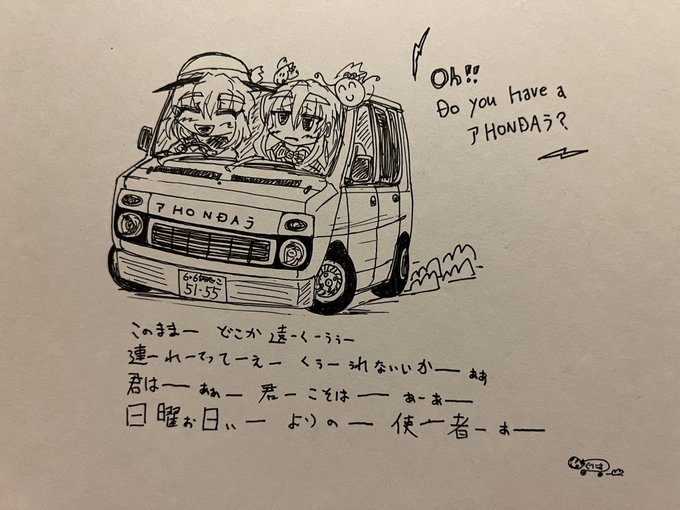 Oh!!
Do you have a
アHONDAラ?
アHONDAラ
51-55
このままー どこか遠ーくーうぅー
連ーれーてってーえー くぅーぅれないいかーーぁぁ
君はーーぁぁー 君ーこそはーー ぁーあーー
日曜ぉ日ぃー よりのー 使ー者ーぁーー